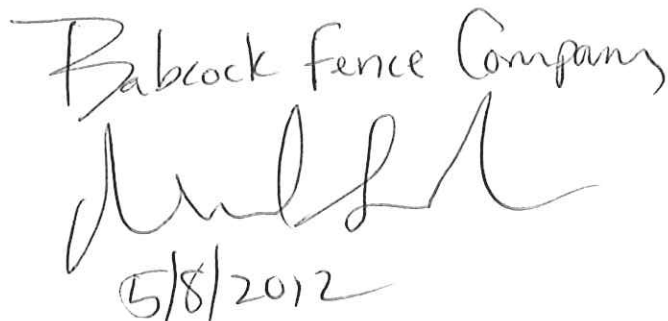 Babcock Fence Company
5/8/2012